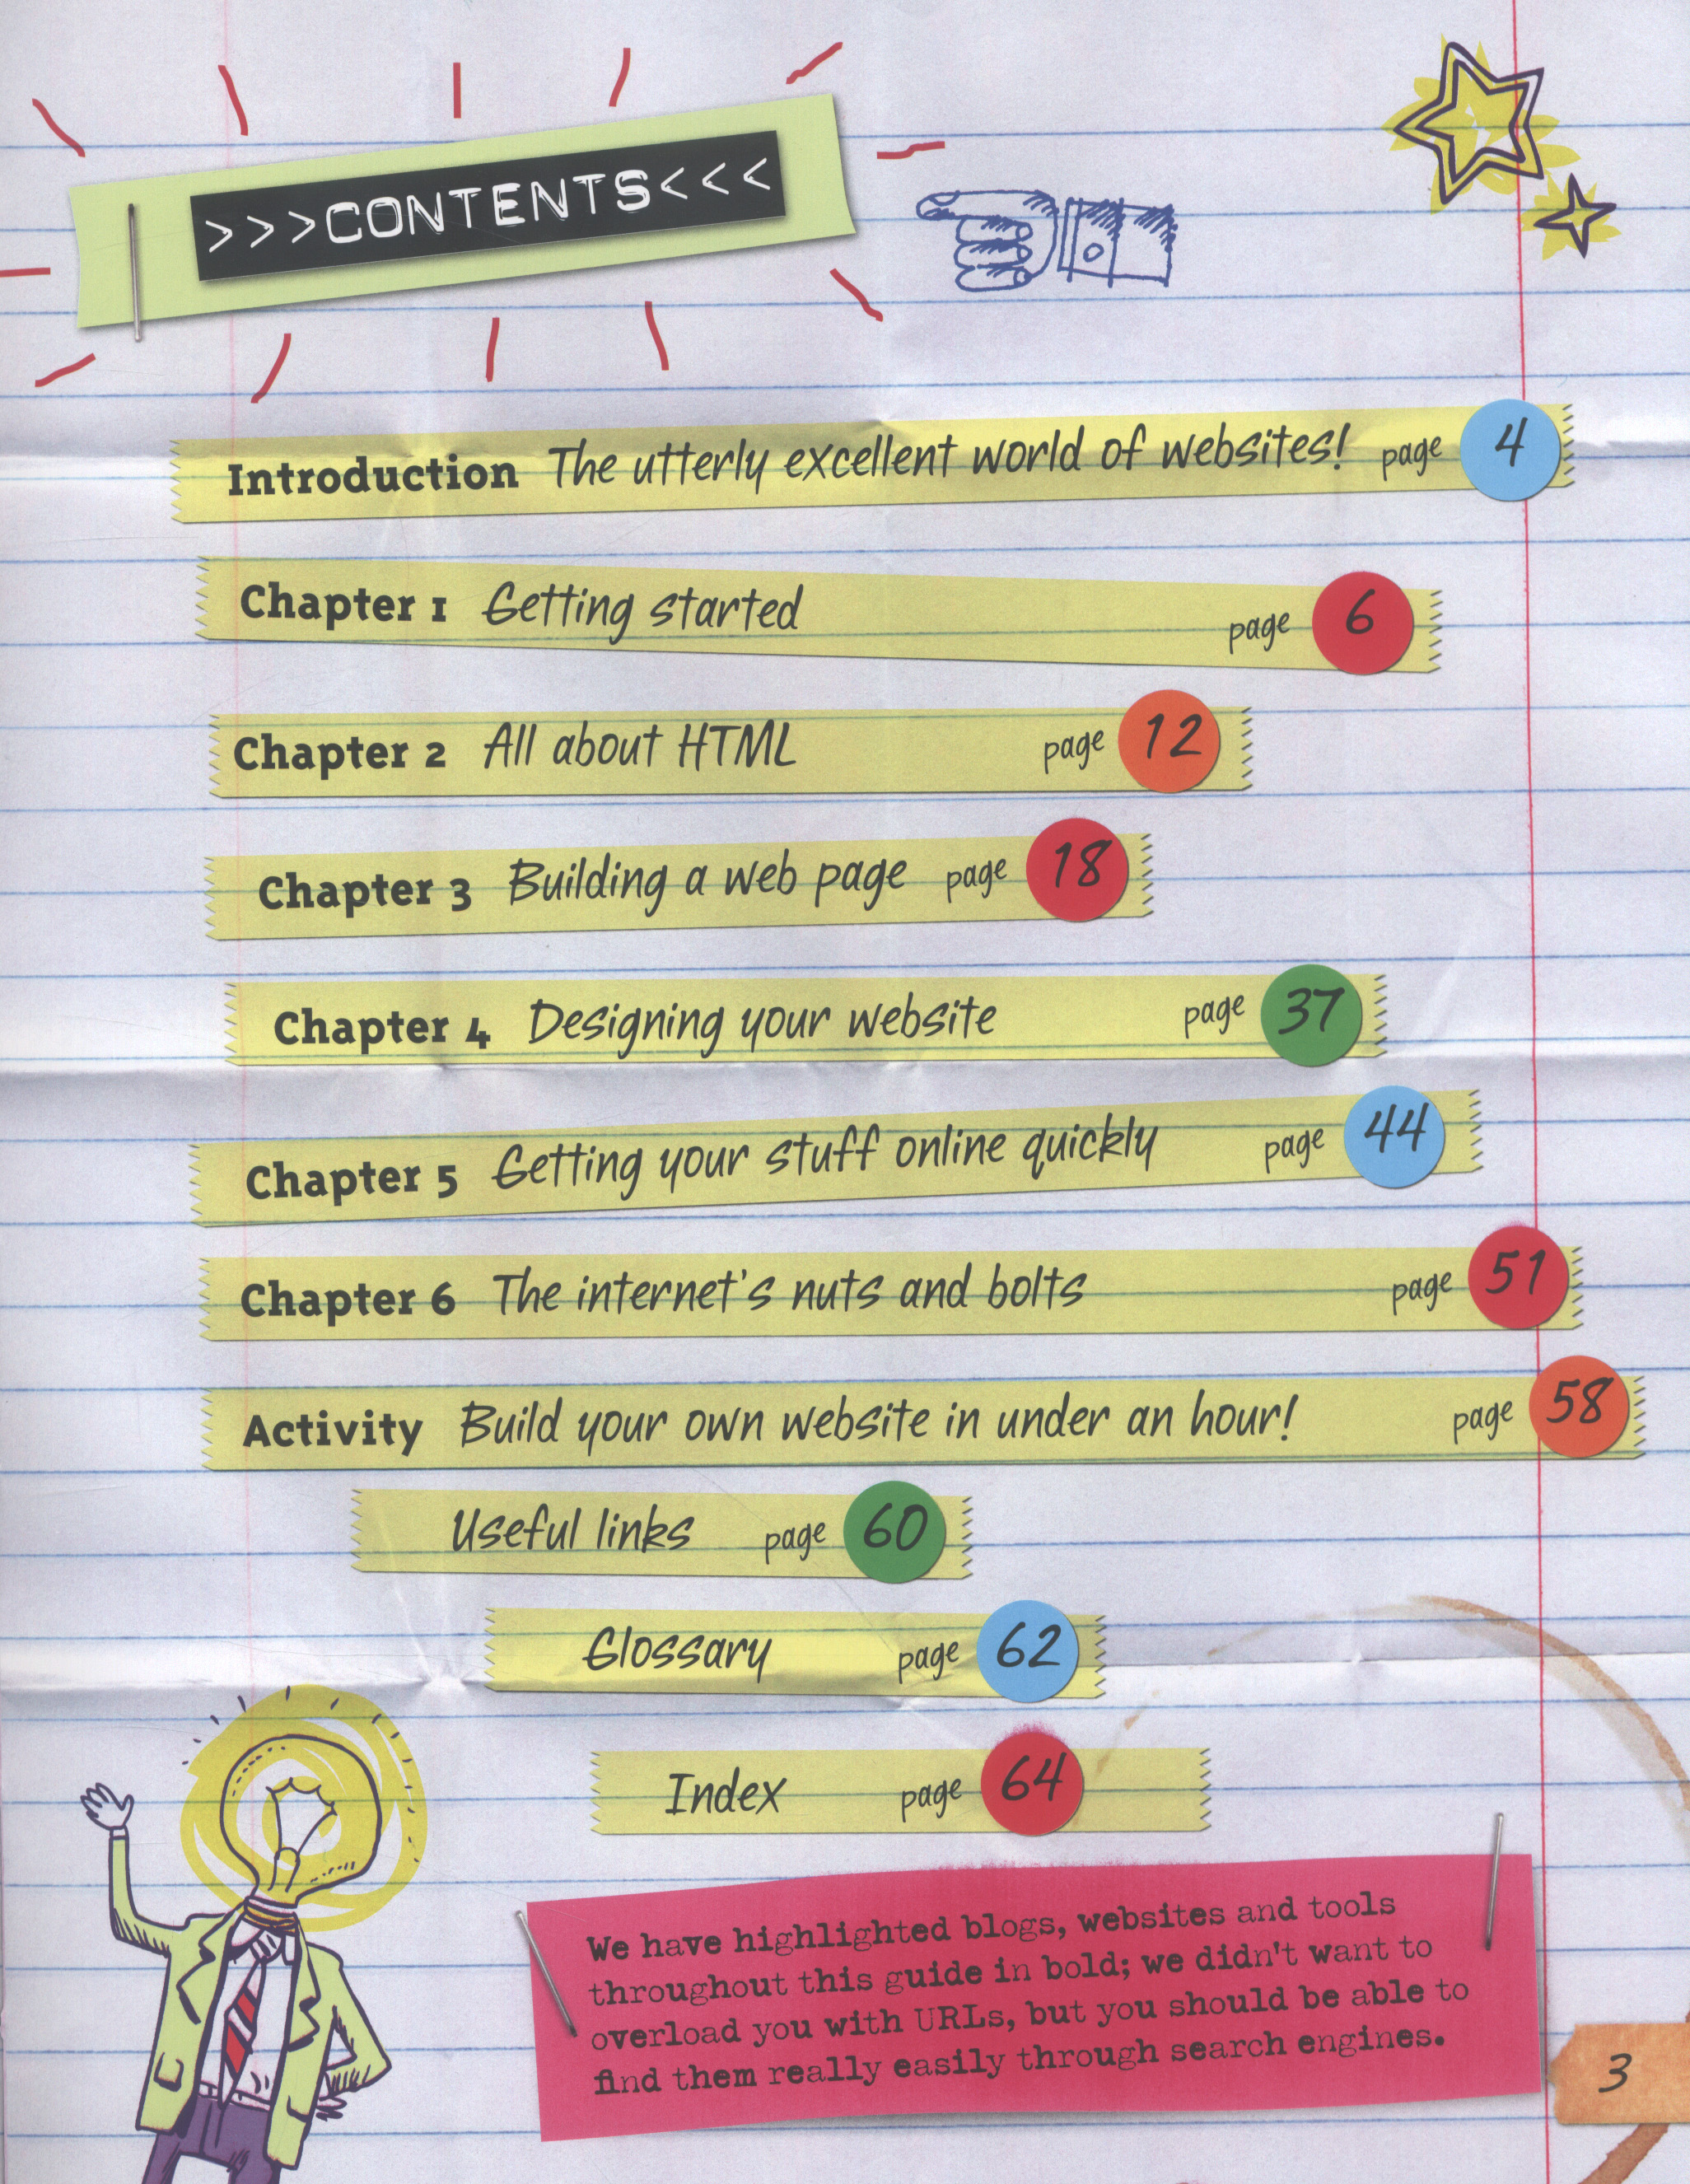 >>>CONTENTS<<<
Introduction The utterly excellent world of websites! page 4
Chapter 1 Getting started page 6
Chapter 2 All about HTML page 12
Chapter 3 Building a web page page 18
Chapter 4 Designing your website page 37
Chapter 5 Getting your stuff online quickly page 44
Chapter 6 The internet's nuts and bolts page 51
Activity Build your own website in under an hour! page 58
Useful links page 60
Glossary page 62
Index page 64
We have highlighted blogs, websites and tools
throughout this guide in bold; we didn't want to
overload you with URLs, but you should be able to
find them really easily through search engines.
3